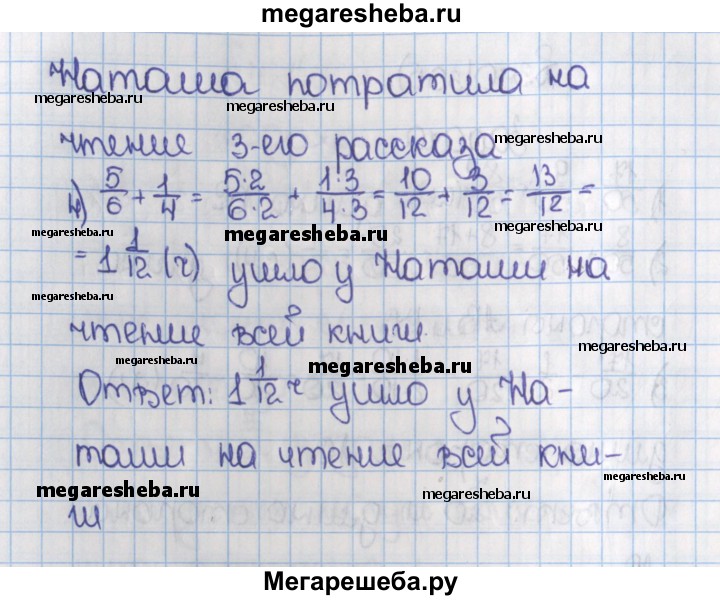 megaresheba.ru
Наташа потратила на
megaresheba.ru megaresheba.ru
чтение 3-его рассказа
megaresheba.ru
4) 5/6 + 1/4 = 5·2/6·2 + 1·3/4·3 = 10/12 + 3/12 = 13/12 =
megaresheba.ru megaresheba.ru megaresheba.ru
= 1 1/12 (ч) ушло у Наташи на
megaresheba.ru
чтение всей книги.
megaresheba.ru
megaresheba.ru megaresheba.ru
Ответ: 1 1/12 ч ушло у На-
таши на чтение всей кни-
megaresheba.ru megaresheba.ru megaresheba.ru
ги
Мегарешеба.ру